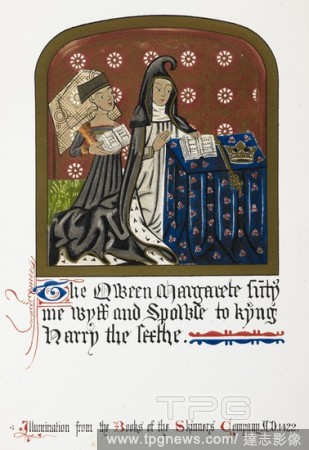 The Qween Margarete sutȳ
me wyff and Spowse to kyng
Harry the sexthe.
Illumination from the Books of the Skinners' Company A.D. 1422
TPG
www.tpgnews.com / 達志影像